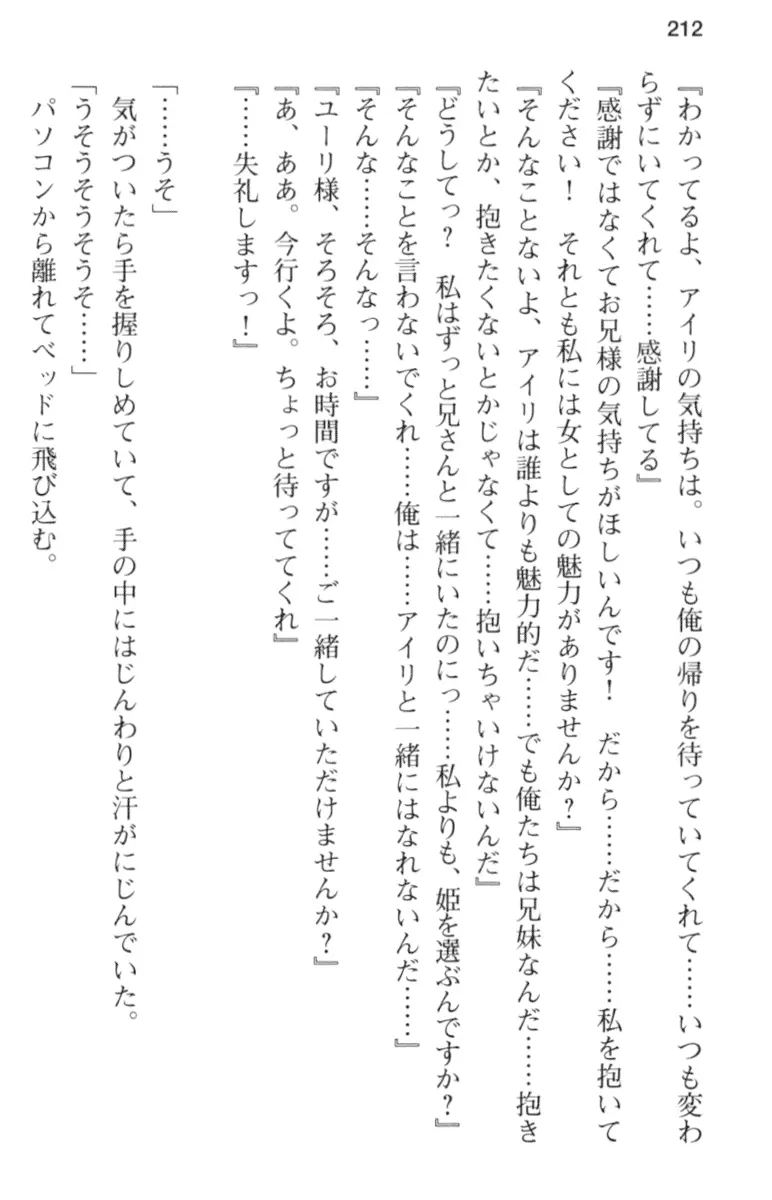 212
『わかってるよ、アイリの気持ちは。いつも俺の帰りを待っていてくれて……いつも変わ
らずにいてくれて……感謝してる』
『感謝ではなくてお兄様の気持ちがほしいんです！　だから……だから……私を抱いて
ください！　それとも私には女としての魅力がありませんか？』
『そんなことないよ、アイリは誰よりも魅力的だ……でも俺たちは兄妹なんだ……抱き
たいとか、抱きたくないとかじゃなくて……抱いちゃいけないんだ』
『どうしてっ？　私はずっと兄さんと一緒にいたのにっ……私よりも、姫を選ぶんですか？』
『そんなことを言わないでくれ……俺は……アイリと一緒にはなれないんだ……』
『そんな……そんなっ……』
『ユーリ様、そろそろ、お時間ですが……ご一緒していただけませんか？』
『あ、ああ。今行くよ。ちょっと待っててくれ』
『……失礼しますっ！』
「……うそ」
気がついたら手を握りしめていて、手の中にはじんわりと汗がにじんでいた。
「うそうそうそうそ……」
パソコンから離れてベッドに飛び込む。